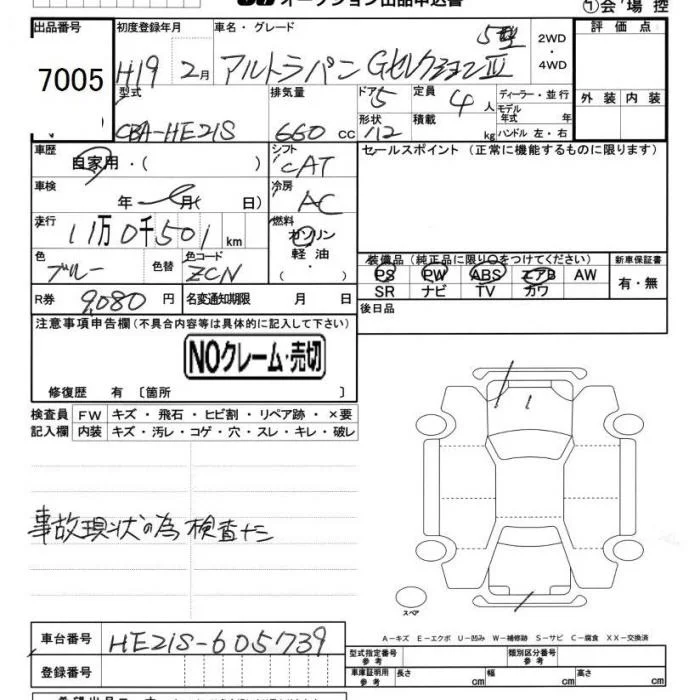 オークション出品申込書
⑦会場控
出品番号 初度登録年月 車名・グレード 5型 2WD・4WD 評価点
7005 H19 2月 アルトラパン GセレクションⅣ
型式 排気量 ドア 5 定員 4人 ディーラー・並行 外装 内装
CBA-HE21S 660cc 形状 /12 積載 kg モデル年式 年 ハンドル 左・右
車歴 自家用・( ) シフト CAT セールスポイント (正常に機能するものに限ります)
車検 年 月( 日) 冷房 AC
走行 11万0千501km 燃料 ガソリン 軽油・( )
色 ブルー 色替 色コード ZCN 装備品(純正品に限り○をつけてください) 新車保証書
PS PW ABS エアB AW 有・無
SR ナビ TV カワ
R券 9,080円 名変通知期限 月 日 後日品
注意事項申告欄(不具合内容等は具体的に記入して下さい)
NOクレーム・売切
修復歴 有〔箇所 〕
検査員 FW キズ・飛石・ヒビ割・リペア跡・×要
記入欄 内装 キズ・汚レ・コゲ・穴・スレ・キレ・破レ
事故現状の為 検査ナシ
スペア
A-キズ E-エクボ U-凹み W-補修跡 S-サビ C-腐食 XX-交換済
車台番号 HE21S-605739 型式指定番号 参考 類別区分番号 参考
登録番号 車庫証明用 参考 長さ cm 幅 cm 高さ cm